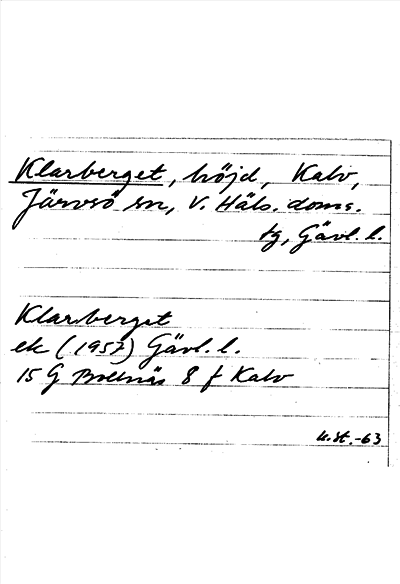 Klarberget, höjd, Kalv,
Järvsö sn, V. Häls. doms.
tg, Gävl. l.
Klarberget
ek (1957) Gävl. l.
15 G Bollnäs 8 f Kalv
u.st.-63